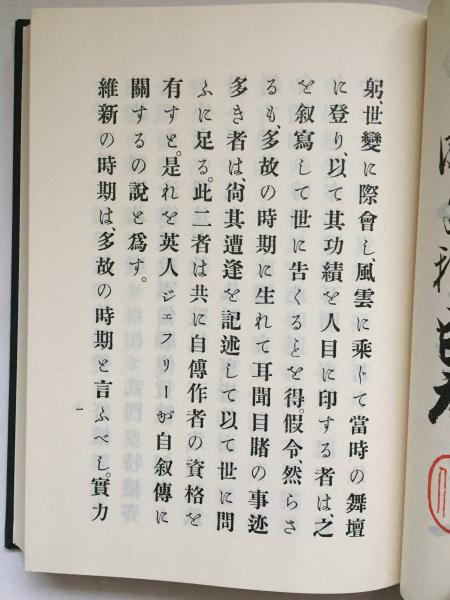 躬、世變に際會し風雲に乘じて當時の舞壇
に登り、以て其功績を人目に印する者は、之
を叙寫して世に告くることを得。假令、然らさ
るも、多故の時期に生れて耳聞目睹の事迹
多き者は、尙其遭逢を記述して以て世に問
ふに足る。此二者は共に自傳作者の資格を
有すと。是れを英人ジェフリーが自叙傳に
關するの說と爲す。
維新の時期は、多故の時期と言ふべし。實力
一